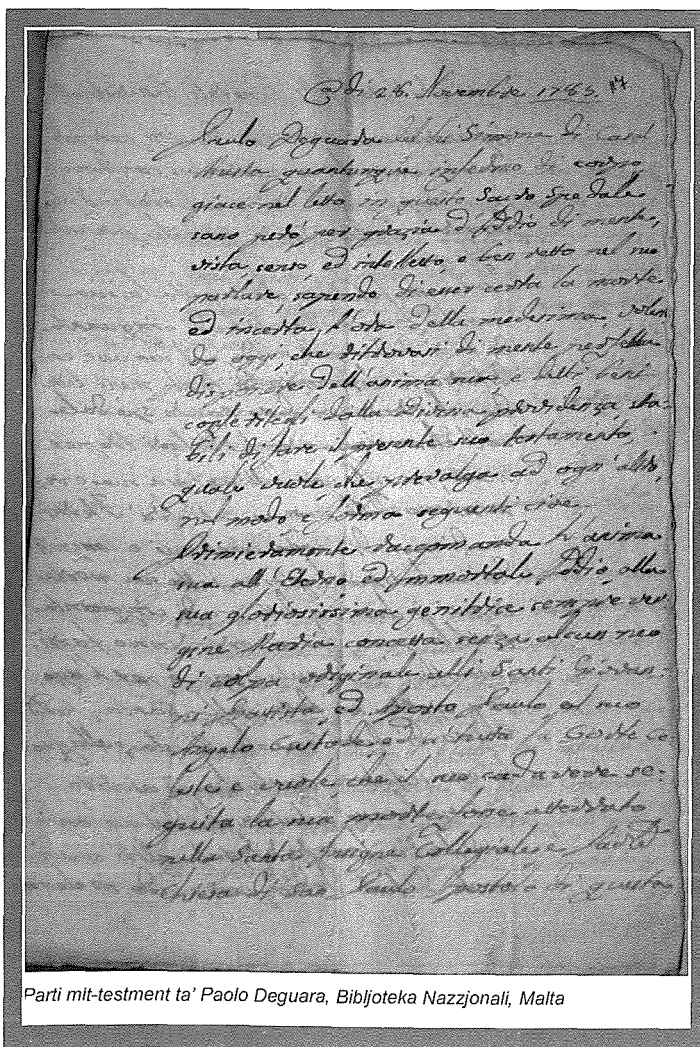 di 28. Novembre 1783. 117
Paulo Deguara del fu Simone di Casal
Musta quantunque infermo di corpo
giace nel letto in questo Sacro Spedale
sano però per grazia d'Iddio di mente,
vista, senso, ed intelletto, e ben retto nel suo
parlare, sapendo di esser certa la morte
ed incerta l'ora della medesima, volen
do oggi, che ritrovasi di mente
disporre dell'anima sua, e delli beni
dalla Divina providenza, sta-
bilì di fare il presente suo testamento,
quale vuole, che prevalga ad ogn'altro,
nel modo, e forma seguenti cioè
Primieramente raccomanda l'anima
sua all'Eterno, ed Immortale Iddio, alla
sua gloriosissima genitrice sempre ver
gine Maria concetta senza alcun neo
di colpa originale alli Santi Giovan-
ni Battista, ed Paulo al suo
Angelo Custode, ed a tutta la Corte ce-
leste e vuole, che il suo cadavere se-
guita la sua morte fosse atterrato
nella Santa Insigne Collegiale, e
Chiesa di San Paulo Apostolo di questa
Parti mit-testment ta' Paolo Deguara, Bibljoteka Nazzjonali, Malta